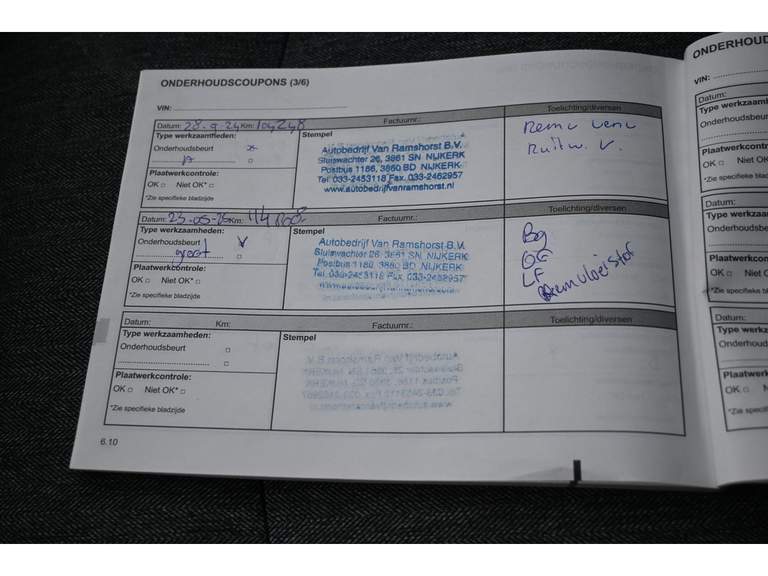 ONDERHOUDSCOUPONS (3/6)
VIN:
Datum: 28-9-24 Km: 104248
Factuurnr.:
Toelichting/diversen
Type werkzaamheden:
Onderhoudsbeurt x
A
Plaatwerkcontrole:
OK □ Niet OK* □
*Zie specifieke bladzijde
Stempel
Autobedrijf Van Ramshorst B.V.
Sluiswachter 26, 3861 SN NIJKERK
Postbus 1186, 3860 BD NIJKERK
Tel. 033-2453118 Fax. 033-2462957
www.autobedrijfvanramshorst.nl
Datum: Km: 114
Factuurnr.:
Toelichting/diversen
Type werkzaamheden:
Onderhoudsbeurt V
groot
Plaatwerkcontrole:
OK □ Niet OK* □
*Zie specifieke bladzijde
Stempel
Autobedrijf Van Ramshorst B.V.
Sluiswachter 26, 3861 SN NIJKERK
Postbus 1186, 3860 BD NIJKERK
Tel. 033-2453118 Fax. 033-2462957
Bg
OF
LF
Remvloeistof
Datum: Km:
Factuurnr.:
Toelichting/diversen
Type werkzaamheden:
Onderhoudsbeurt □
Plaatwerkcontrole:
OK □ Niet OK* □
*Zie specifieke bladzijde
Stempel
6.10
ONDERHOUD
VIN:
Datum:
Type werkza
Onderhoudsbe
Plaatwerkcor
OK □ Niet O
*Zie specifieke b
Datum:
Type werkza
Onderhoudsbe
Plaatwerkcon
OK □ Niet O
*Zie specifieke b
Datum:
Type werkz
Onderhoud
Plaatwerkc
OK □ Niet
*Zie specifiek